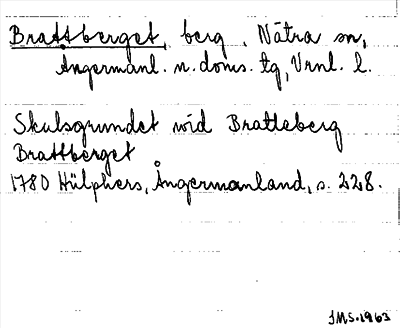 Brattberget, berg. Nätra sn,
Ångermanl. n. doms. tg, Vrnl. l.
Skulsgrundet wid Bratteberg
Brattberget
1780 Hülphers, Ångermanland, s. 228.
JMS. 1963